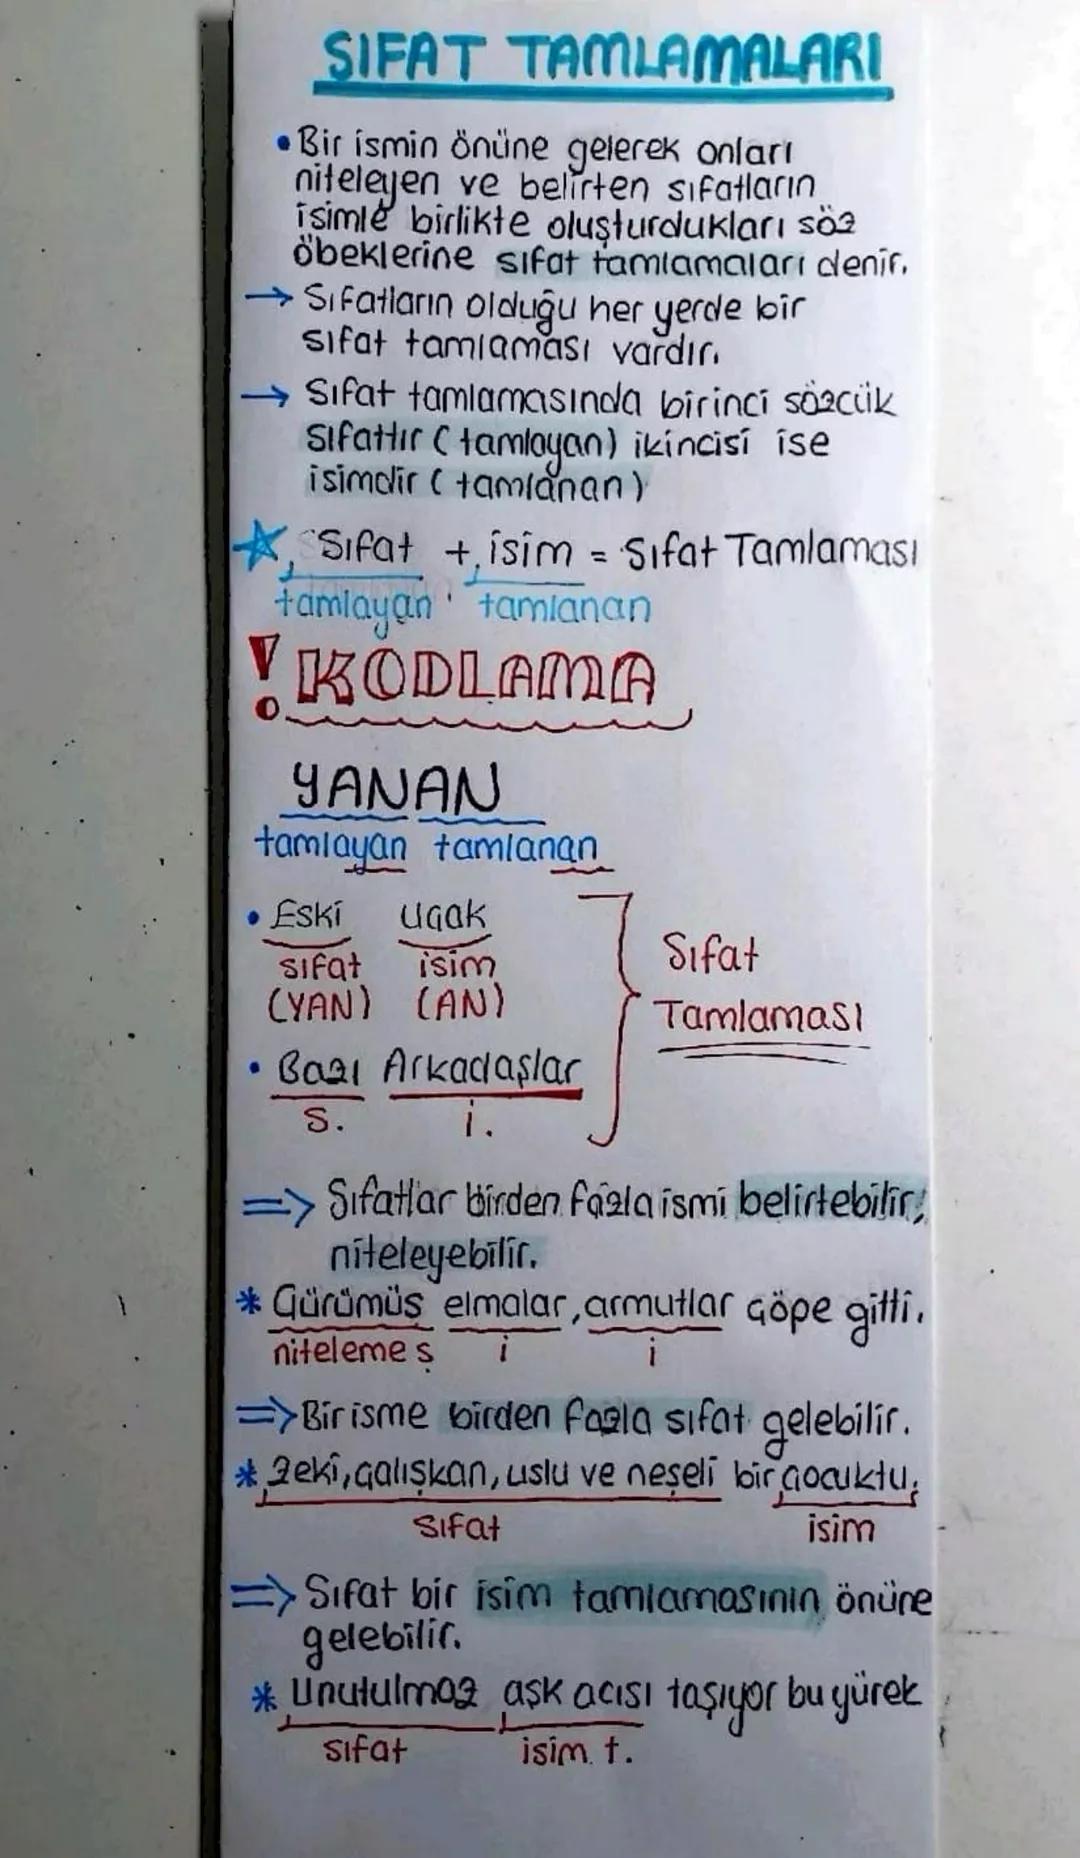 SIFAT TAMLAMALARI
• Bir ismin önüne gelerek onları
niteleyen ve belirten sıfatların
isimle birlikte oluşturdukları söz
öbeklerine sıfat tamlamaları denir.
→ Sıfatların olduğu her yerde bir
sıfat tamlaması vardır.
→ Sıfat tamlamasında birinci sözcük
sıfattır (tamlayan) ikincisi ise
isimdir (tamlanan)
☆ Sıfat + isim = Sıfat Tamlaması
tamlayan tamlanan
! KODLAMA
YANAN
tamlayan tamlanan
• Eski uçak
sıfat isim
(YAN) (AN)
• Bazı Arkadaşlar
s. i.
Sıfat
Tamlaması
=> Sıfatlar birden fazla ismi belirtebilir,
niteleyebilir.
* Çürümüş elmalar, armutlar çöpe gitti.
niteleme s i i
=> Bir isme birden fazla sıfat gelebilir.
* Zeki, çalışkan, uslu ve neşeli bir çocuktu.
sıfat isim
=> Sıfat bir isim tamlamasının önüne
gelebilir.
* Unutulmaz aşk acısı taşıyor bu yürek
sıfat isim t.